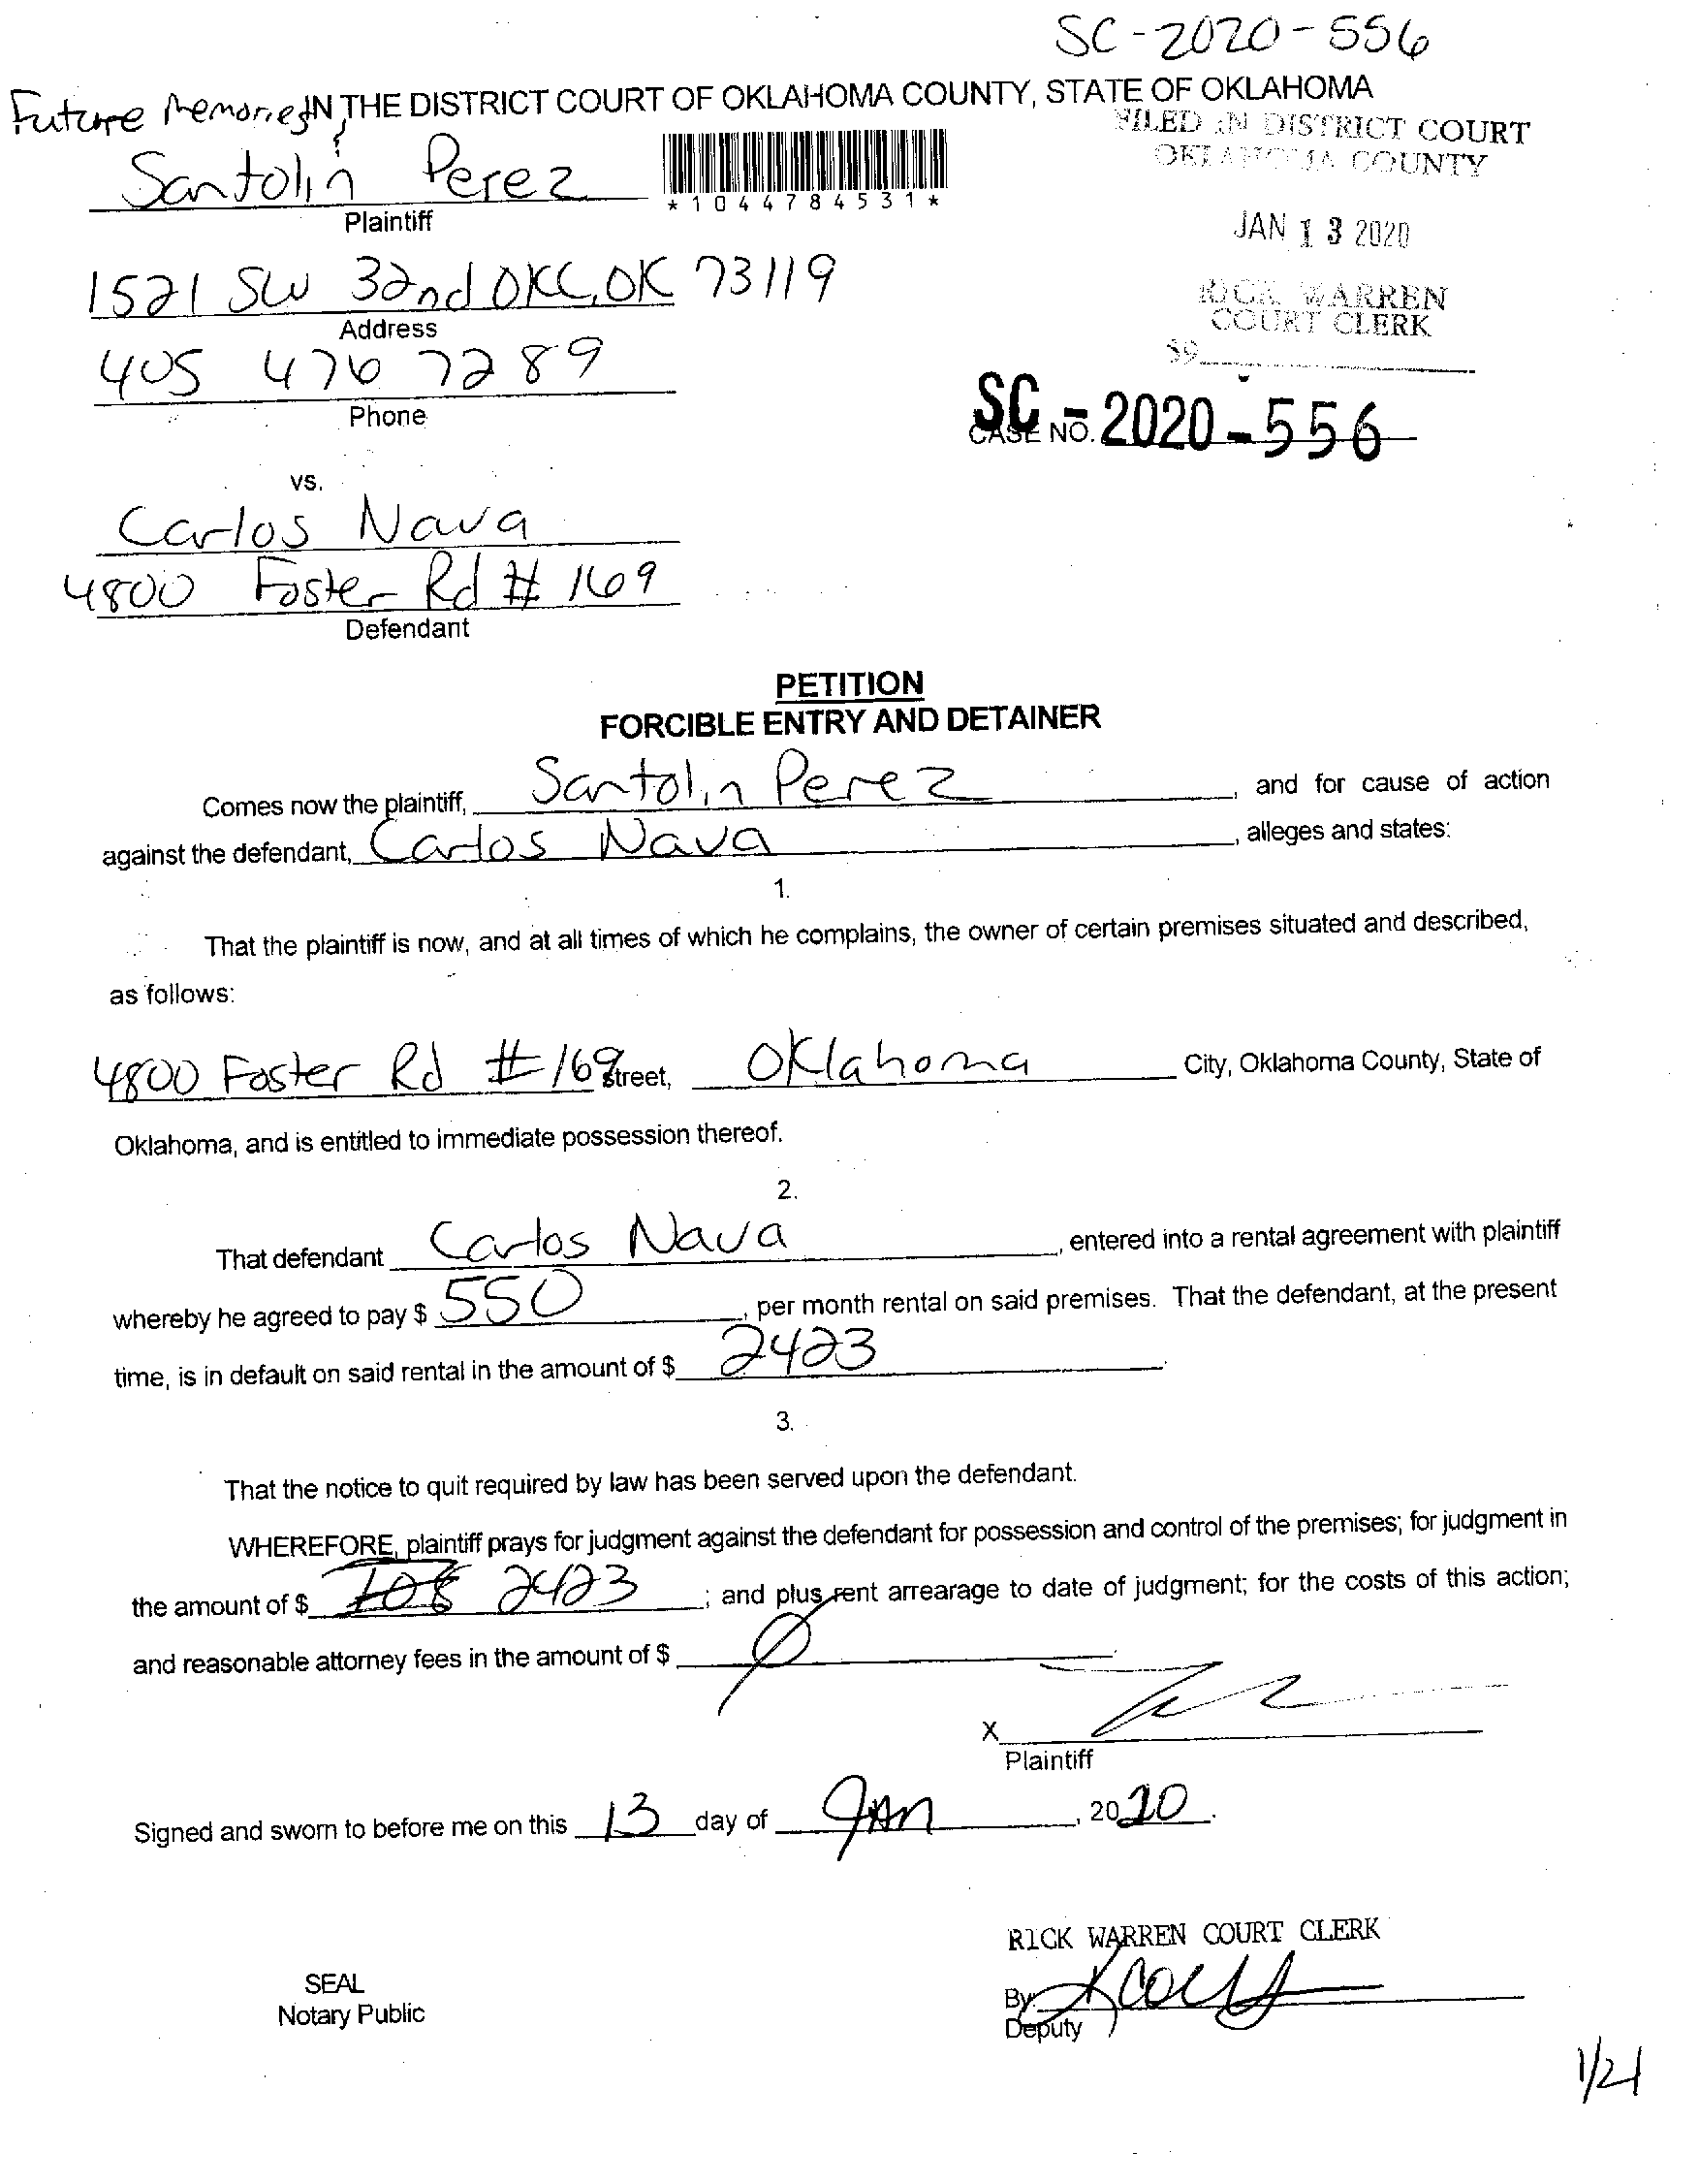 SC-2020-556
Future Memories IN THE DISTRICT COURT OF OKLAHOMA COUNTY, STATE OF OKLAHOMA
FILED IN DISTRICT COURT
OKLAHOMA COUNTY
Santolin Perez
*1044784531*
Plaintiff
JAN 13 2020
1521 SW 32nd OKC, OK 73119
Address
RICK WARREN
COURT CLERK
405 476 7289
59
Phone
SC - 2020 - 556
CASE NO.
vs.
Carlos Nava
4800 Foster Rd # 169
Defendant
PETITION
FORCIBLE ENTRY AND DETAINER
Comes now the plaintiff, Santolin Perez, and for cause of action
against the defendant, Carlos Nava, alleges and states:
1.
That the plaintiff is now, and at all times of which he complains, the owner of certain premises situated and described,
as follows:
4800 Foster Rd # 169 Street, Oklahoma City, Oklahoma County, State of
Oklahoma, and is entitled to immediate possession thereof.
2.
That defendant Carlos Nava, entered into a rental agreement with plaintiff
whereby he agreed to pay $ 550, per month rental on said premises. That the defendant, at the present
time, is in default on said rental in the amount of $ 2423.
3.
That the notice to quit required by law has been served upon the defendant.
WHEREFORE, plaintiff prays for judgment against the defendant for possession and control of the premises; for judgment in
the amount of $ 2423; and plus rent arrearage to date of judgment; for the costs of this action;
and reasonable attorney fees in the amount of $ Ø.
X
Plaintiff
Signed and sworn to before me on this 13 day of JAN, 2020.
RICK WARREN COURT CLERK
SEAL
By:
Notary Public
Deputy
1/21